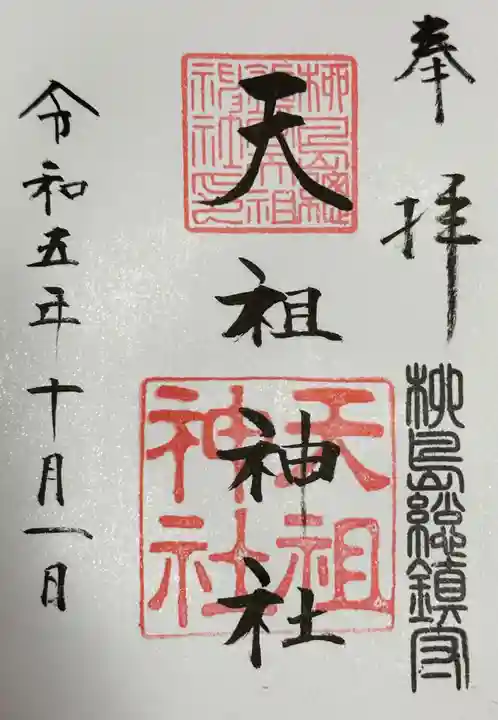 奉拝
柳島総鎮守
天祖神社
柳島総鎮守天祖神社印
天祖神社
令和五年十月一日